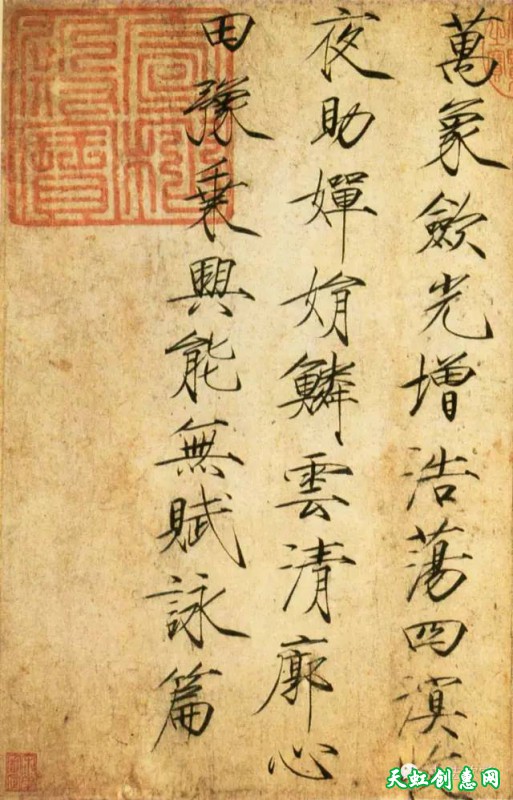 萬象歛光增浩蕩四溟
夜助嬋娟鱗雲清廓心
田豫乗興能無賦詠篇
天虹创惠网